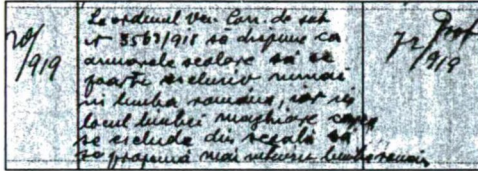 20/919
La ordinul Ven. Con. de sub
nr 3563/918 să dispune ca
anuarele școlare să se
poarte exclusiv numai
in limba română, iar in
locul limbei maghiare care
se exclude din școală să
se propună mai intensiv limba română
72/Prof
919